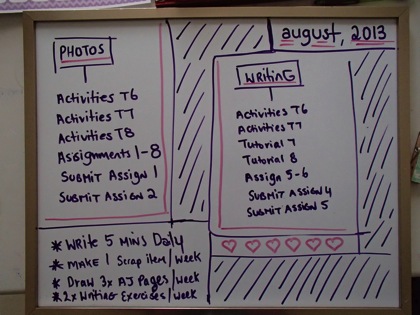 august, 2013
PHOTOS
Activities T6
Activities T7
Activities T8
Assignments 1-8
Submit Assign 1
Submit Assign 2
WRITING
Activities T6
Activities T7
Tutorial 7
Tutorial 8
Assign 5-6
Submit Assign 4
Submit Assign 5
* Write 5 mins Daily
* Make 1 Scrap item/week
* Draw 3x AJ Pages/week
* 2x Writing Exercises/week